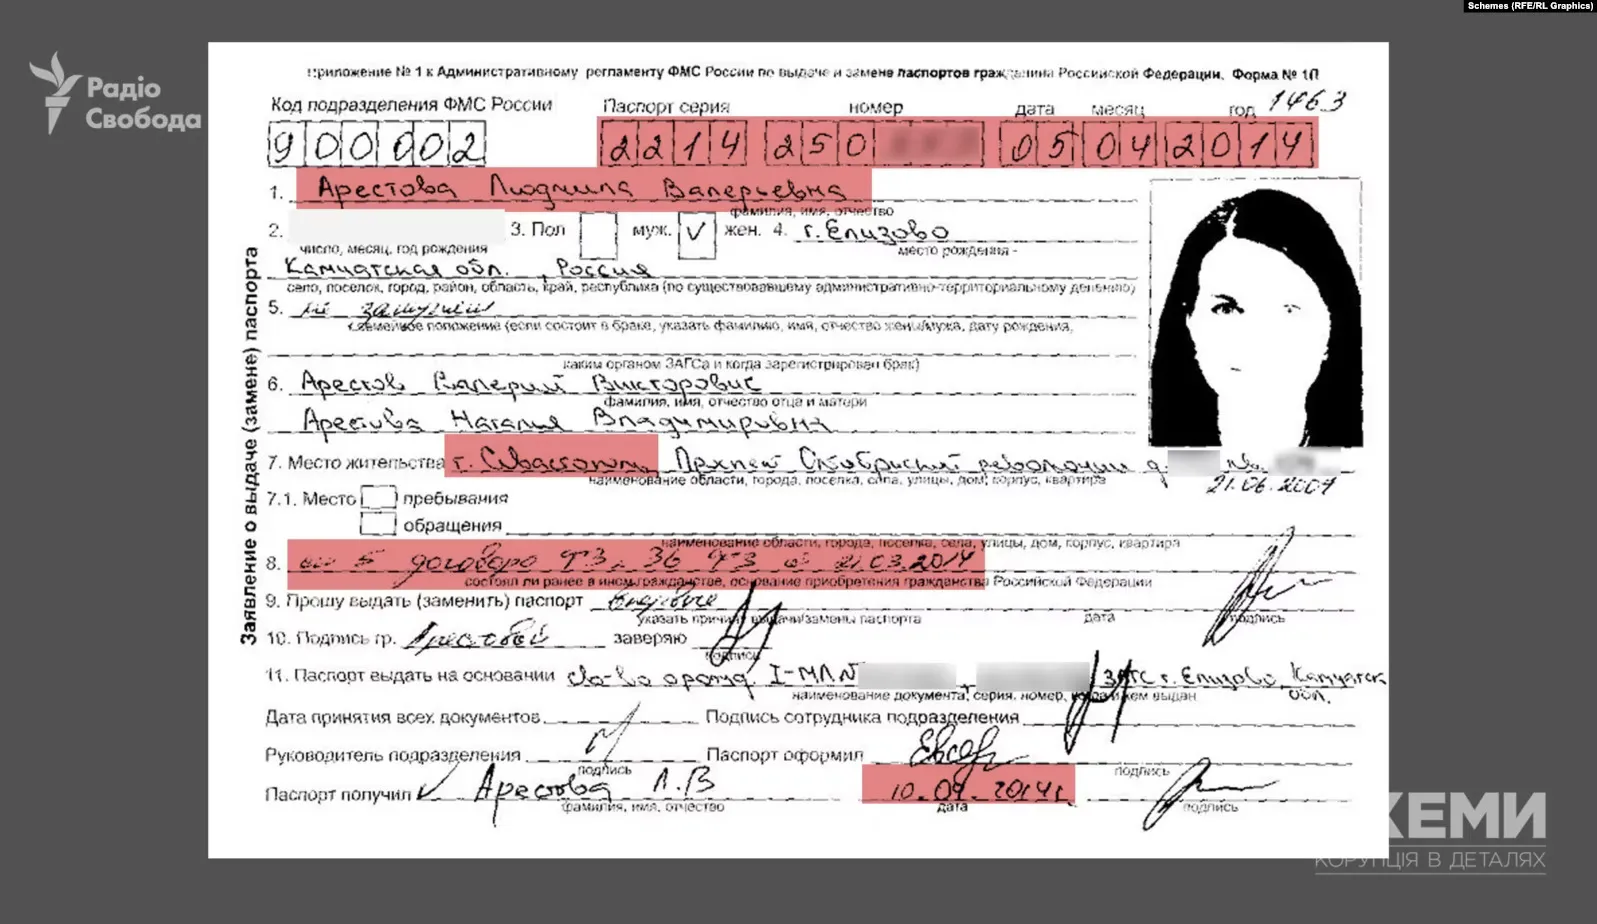 Schemes (RFE/RL Graphics)
Радіо
Свобода
Приложение № 1 к Административному регламенту ФМС России по выдаче и замене паспортов гражданина Российской Федерации. Форма № 1П
1463
Код подразделения ФМС России Паспорт серия номер дата месяц год
900002 2214 250 05 04 2014
Заявление о выдаче (замене) паспорта
1. Арестова Людмила Валерьевна
фамилия, имя, отчество
2. 3. Пол муж. ✓ жен. 4. г. Елизово
число, месяц, год рождения место рождения
Камчатская обл., Россия
село, поселок, город, район, область, край, республика (по существовавшему административно-территориальному делению)
5. не замужем
семейное положение (если состоит в браке, указать фамилию, имя, отчество жены/мужа, дату рождения,
каким органом ЗАГСа и когда зарегистрирован брак)
6. Арестов Валерий Викторович
фамилия, имя, отчество отца и матери
Арестова Наталья Владимировна
7. Место жительства г. Севастополь, Октябрьской революции д.
наименование области, города, поселка, села, улицы, дом, корпус, квартира
21.06.2007
7.1. Место пребывания
обращения
наименование области, города, поселка, села, улицы, дом, корпус, квартира
8. 5 договора 36 21.03.2014
состоял ли ранее в ином гражданстве, основание приобретения гражданства Российской Федерации
9. Прошу выдать (заменить) паспорт впервые
указать причину выдачи/замены паспорта дата подпись
10. Подпись гр. Арестовой заверяю
подпись
11. Паспорт выдать на основании св-во о рожд. I-МЛ № ЗАГС г. Елизово Камчатск
наименование документа, серия, номер, когда и кем выдан
обл.
Дата принятия всех документов Подпись сотрудника подразделения
Руководитель подразделения Паспорт оформил
подпись подпись
Паспорт получил Арестова Л.В 10.04.2014г.
фамилия, имя, отчество дата подпись
СХЕМИ
КОРУПЦІЯ В ДЕТАЛЯХ